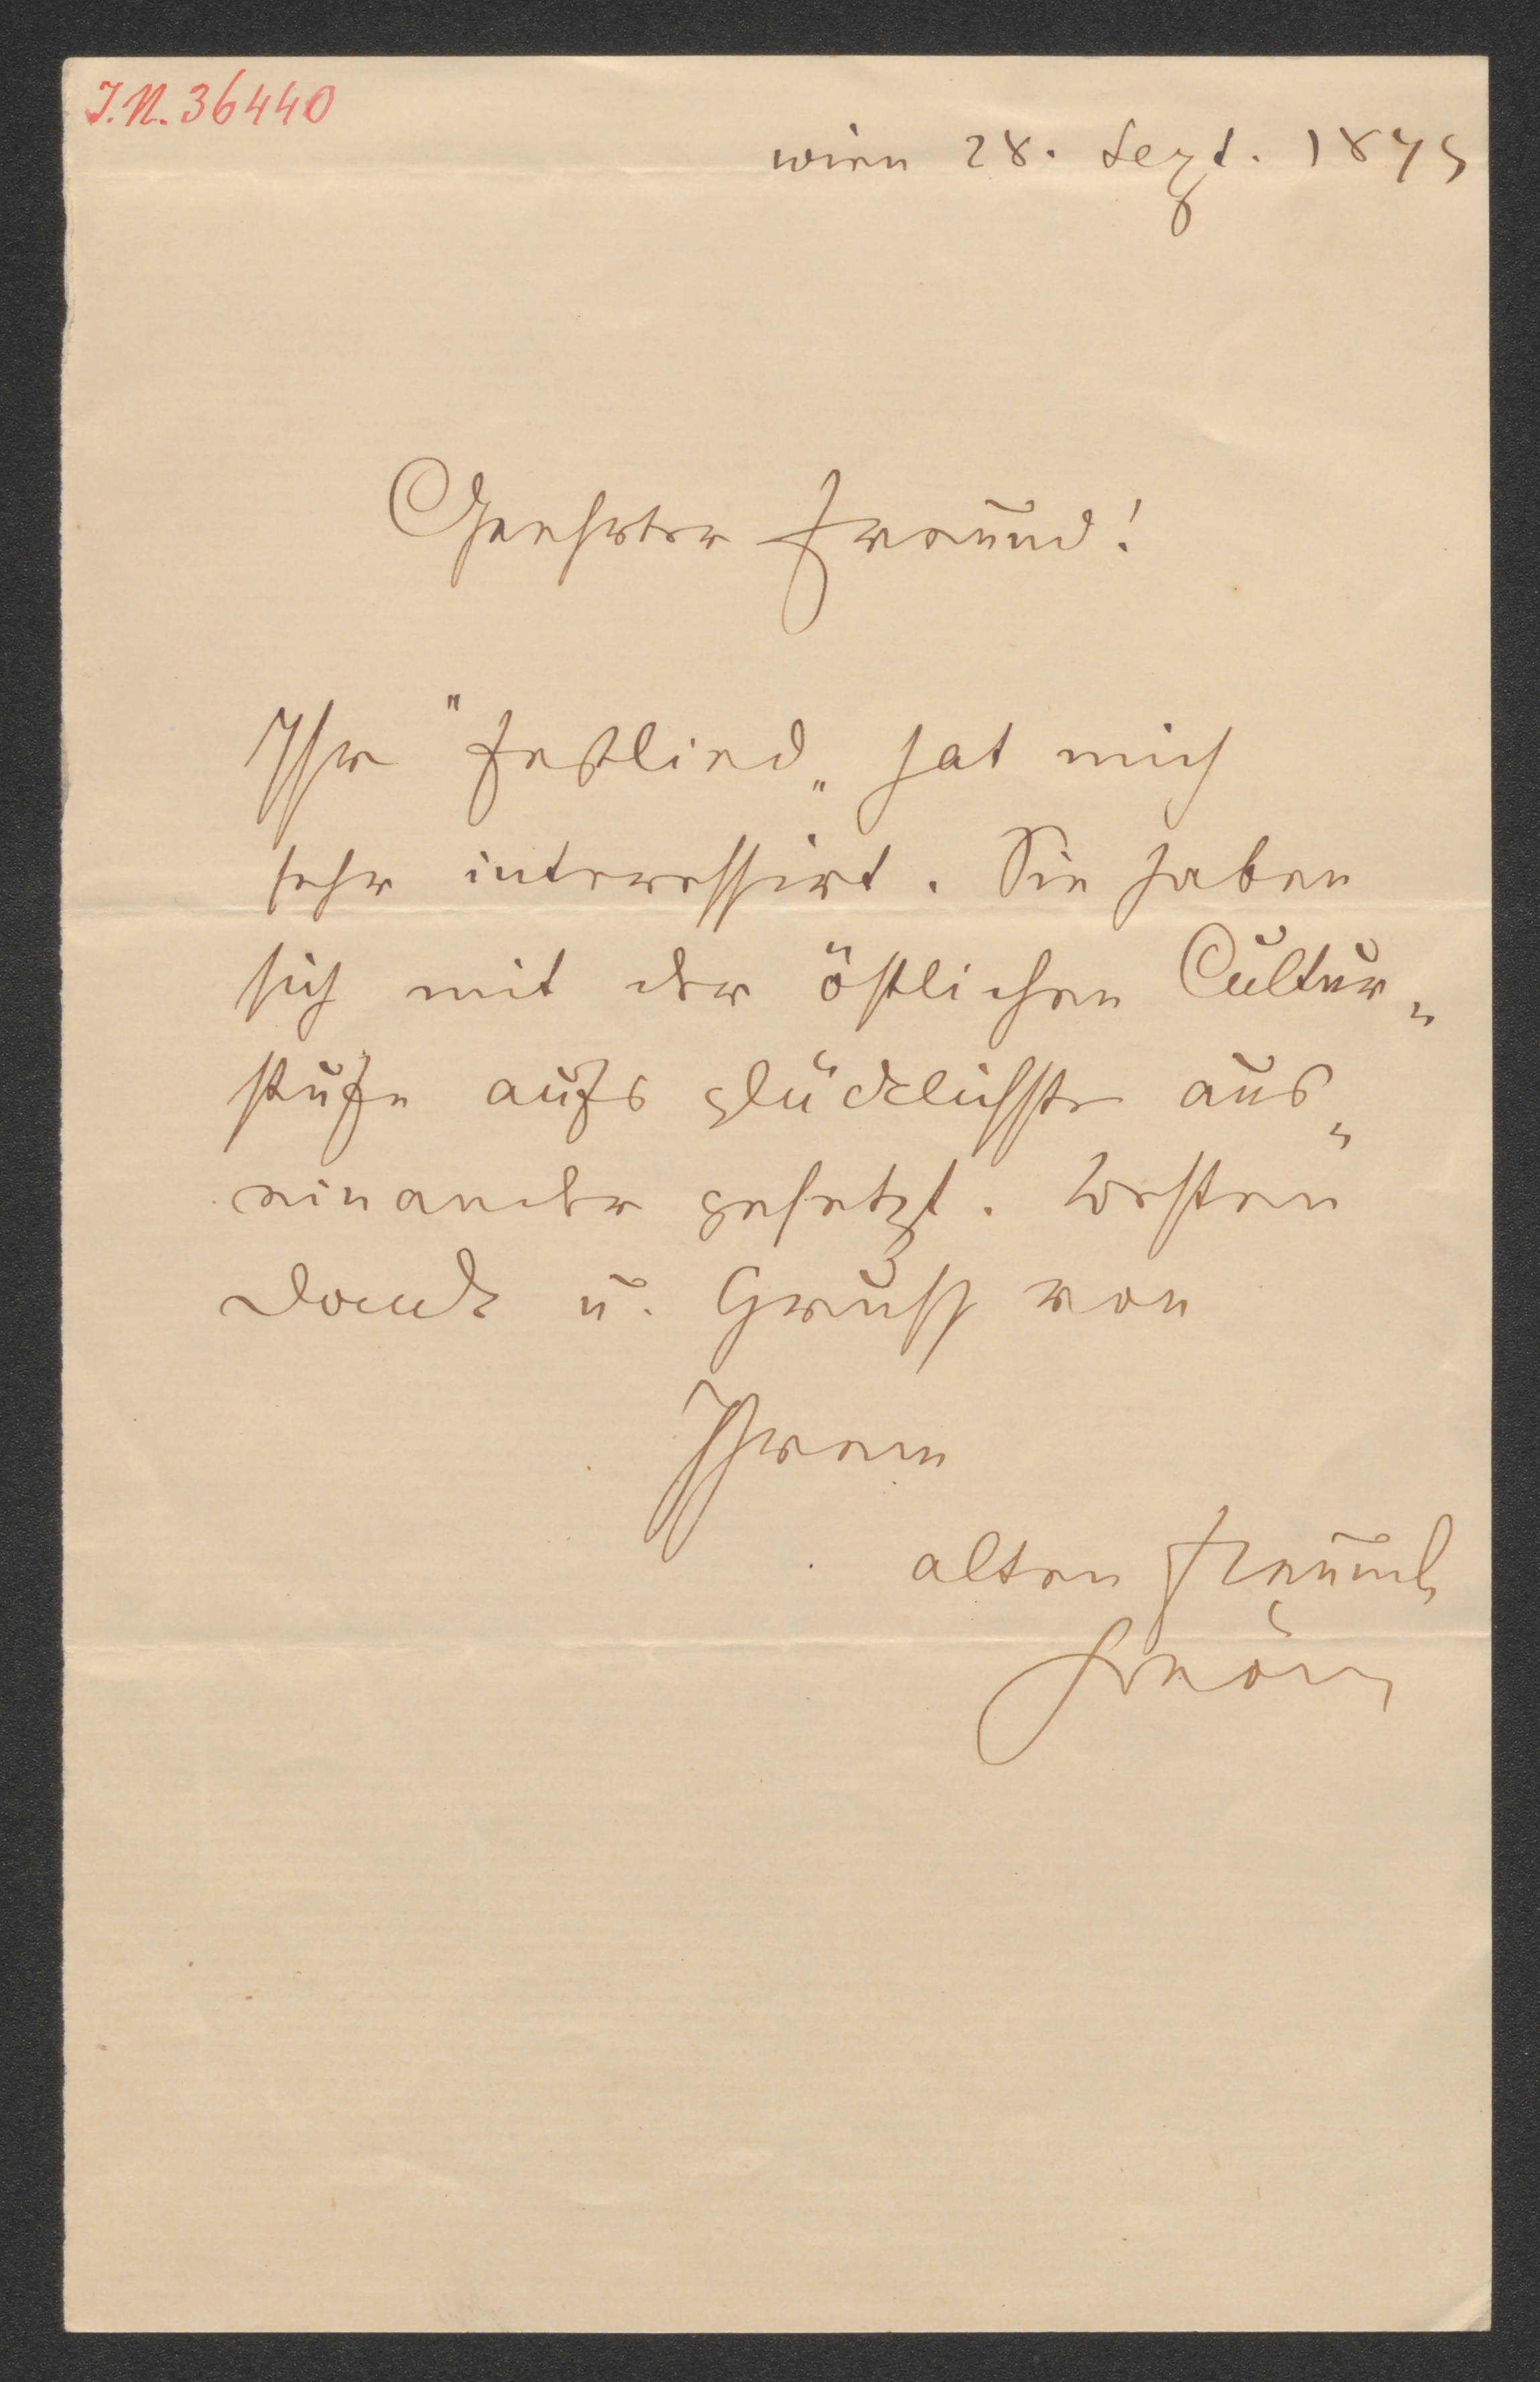 I.N. 36440
Wien 28. Sept. 1875
Geehrter Freund!
Ihr "Festlied" hat mich
sehr interessirt. Sie haben
sich mit der östlichen Cultur„
stufe aufs glücklichste aus„
einander gesetzt. Besten
Dank u. Gruss von
Ihrem
alten Freund